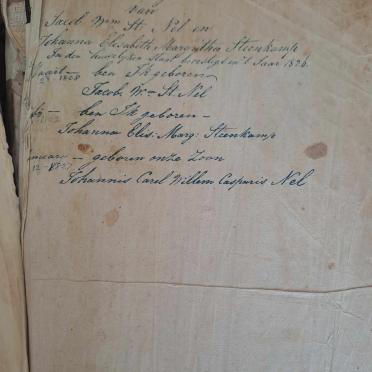 van
Jacob Wm St. Nel en
Johanna Elisabeth Margritha Steenkamp
In den huwelyken staat bevestigd in't Jaar 1826.
ben Ik geboren
Jacob Wm St Nel
ben Ik geboren –
Johanna Elis: Marg: Steenkamp
– geboren onze Zoon
12 –
Johannis Carel Willem Casparis Nel